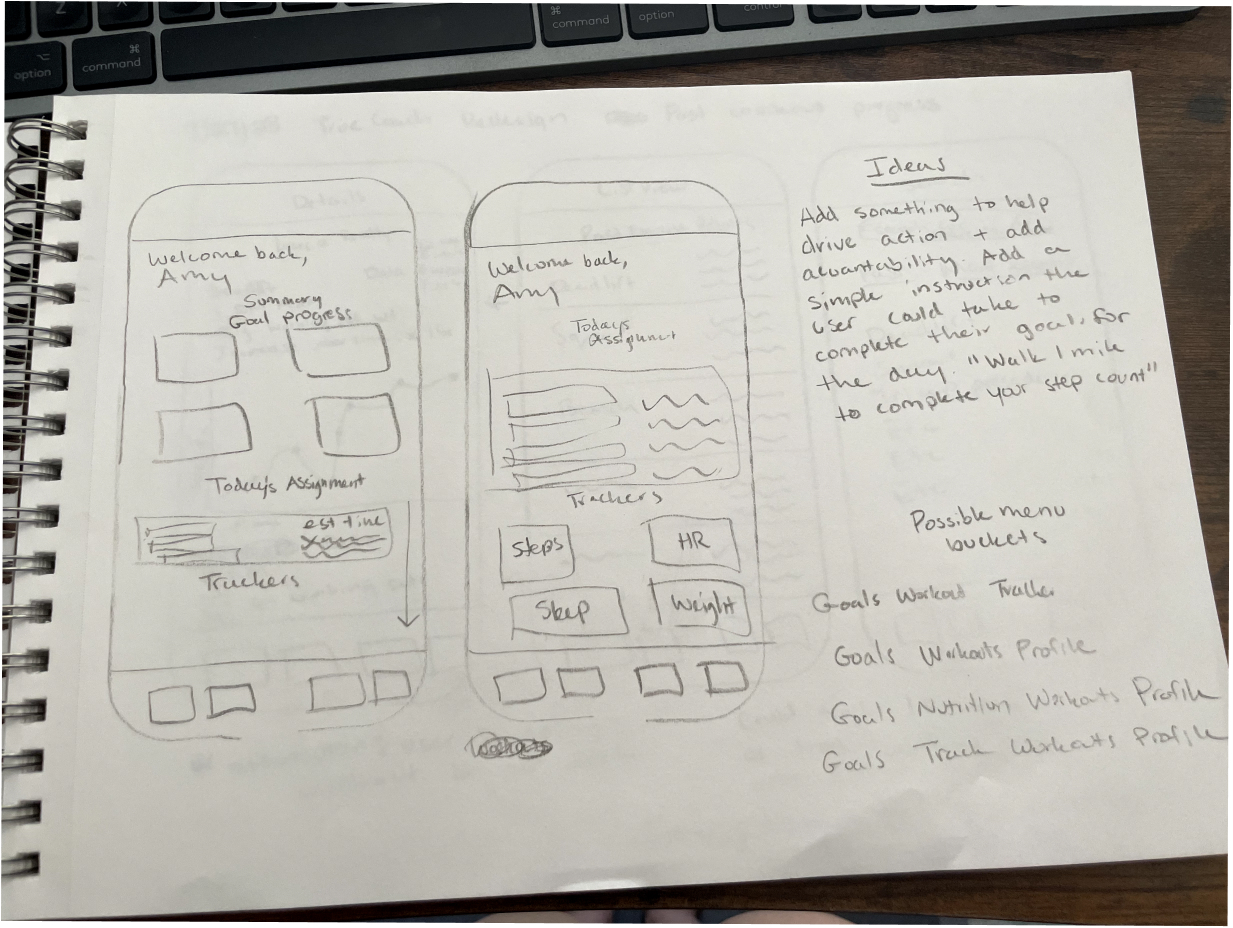 option
⌘
command
⌘
command
option
Welcome back,
Amy
Summary
Goal progress
Today's Assignment
est time
Trackers
Welcome back,
Amy
Todays
Assignment
Trackers
Steps
HR
Sleep
Weight
Ideas
Add something to help
drive action + add
accountability. Add a
simple instruction the
user could take to
complete their goal, for
the day. "Walk 1 mile
to complete your step count"
Possible menu
buckets
Goals Workout Tracker
Goals Workouts Profile
Goals Nutrition Workouts Profile
Goals Track Workouts Profile